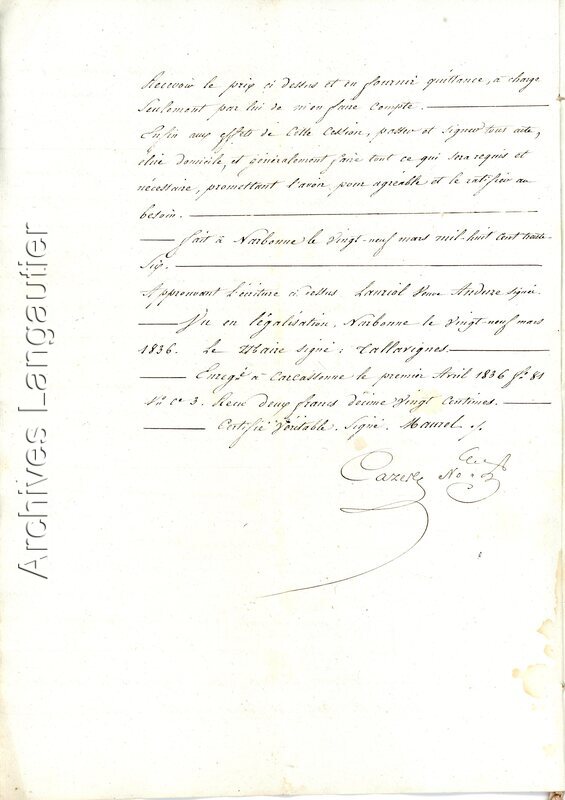 Recevoir le prix ci dessus et en fournir quittance, a charge
Seulement par lui de m'en faire Compte.
Enfin aux effets de Cette Cession, passer et signer tous acte,
élire domicile, et généralement faire tout ce qui sera requis et
nécessaire, promettant l'avoir pour agréable et le ratifier au
besoin.
fait à Narbonne le vingt-neuf mars mil-huit Cent trente-
Six.
Approuvant l'écriture ci dessus Lauriol Veuve Andure signée.
Vu en légalisation. Narbonne le vingt-neuf mars
1836. Le Maire signé : Tallavignes.
Enregé à Carcassonne le premier Avril 1836 fo. 81
Vo Ce 3. Recu deux francs décime vingt Centimes.
Certifié Véritable. Signé. Maurel
Cazes No.re
Archives Langautier